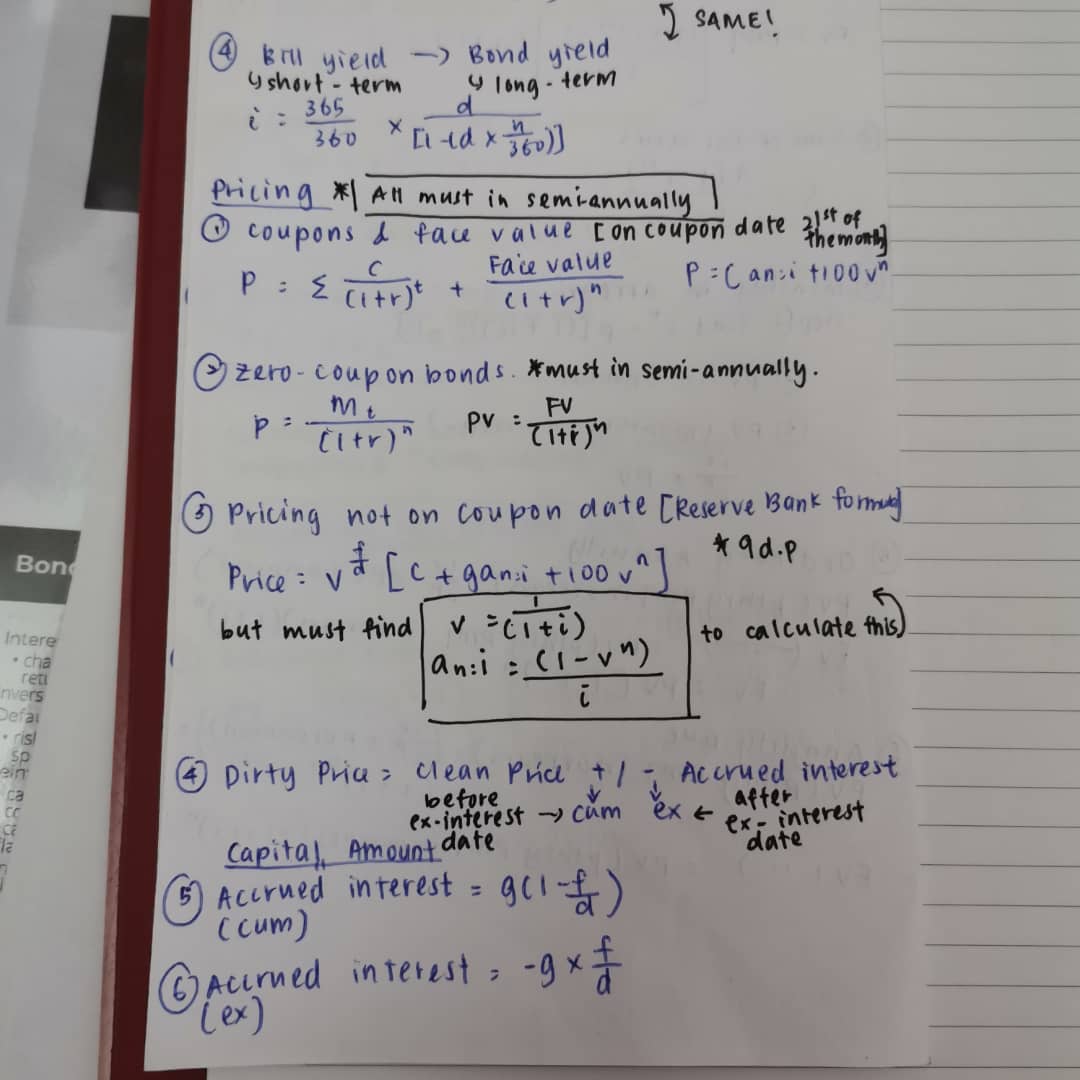 SAME!
④ Bill yield → Bond yield
↳ short-term ↳ long-term
i = 365/360 × d/[1-(d × n/360)]
Pricing * | All must in semi-annually
① coupons & face value [on coupon date 21st of the month]
P = Σ C/(1+r)^t + Face value/(1+r)^n P = C an:i +100 v^n
② zero-coupon bonds. *must in semi-annually.
P = Mt/(1+r)^n PV = FV/(1+i)^n
③ Pricing not on coupon date [Reserve Bank formula]
* 9d.p
Price = v^f/d [C + gan:i +100 v^n]
but must find v = 1/(1+i) to calculate this)
an:i = (1-v^n)/i
④ Dirty Price = clean Price +/- Accrued interest
before ex-interest date → cum ex ← after ex-interest date
Capital Amount
⑤ Accrued interest = g(1-f/d)
(cum)
⑥ Accrued interest = -g × f/d
(ex)
Bon
Intere
• cha
reti
nvers
Defau
• risk
sp
ein
ca
cc
ca